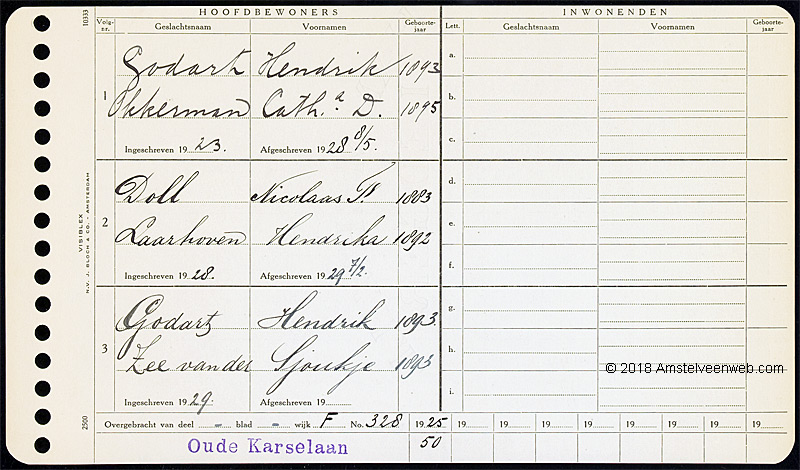 HOOFDBEWONERS INWONENDEN
Volg-nr. Geslachtsnaam Voornamen Geboorte-jaar Lett. Geslachtsnaam Voornamen Geboorte-jaar
10333
Godart Hendrik 1893 a.
1 Okkerman Cath.a D. 1895 b.
Ingeschreven 1923. Afgeschreven 1928 8/5. c.
Doll Nicolaas 1883 d.
2 Laarhoven Hendrika 1892 e.
Ingeschreven 1928. Afgeschreven 1929 7/2. f.
VISIBLEX
N.V. J. BLOCH & CO. - AMSTERDAM
Godart Hendrik 1893. g.
3 Zee van der Sjoukje 1893 h.
© 2018 Amstelveenweb.com
Ingeschreven 1929. Afgeschreven 19 i.
2500
Overgebracht van deel – blad – wijk F No. 328 1925 19 19 19 19 19 19 19 19
Oude Karselaan 50